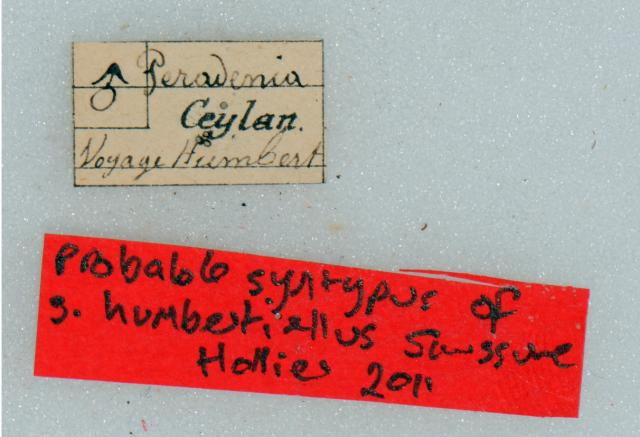 ♂ Peradenia
Ceylan.
Voyage Humbert
Probable syntypus of
g. humbertiellus Saussure
Hollier 2011